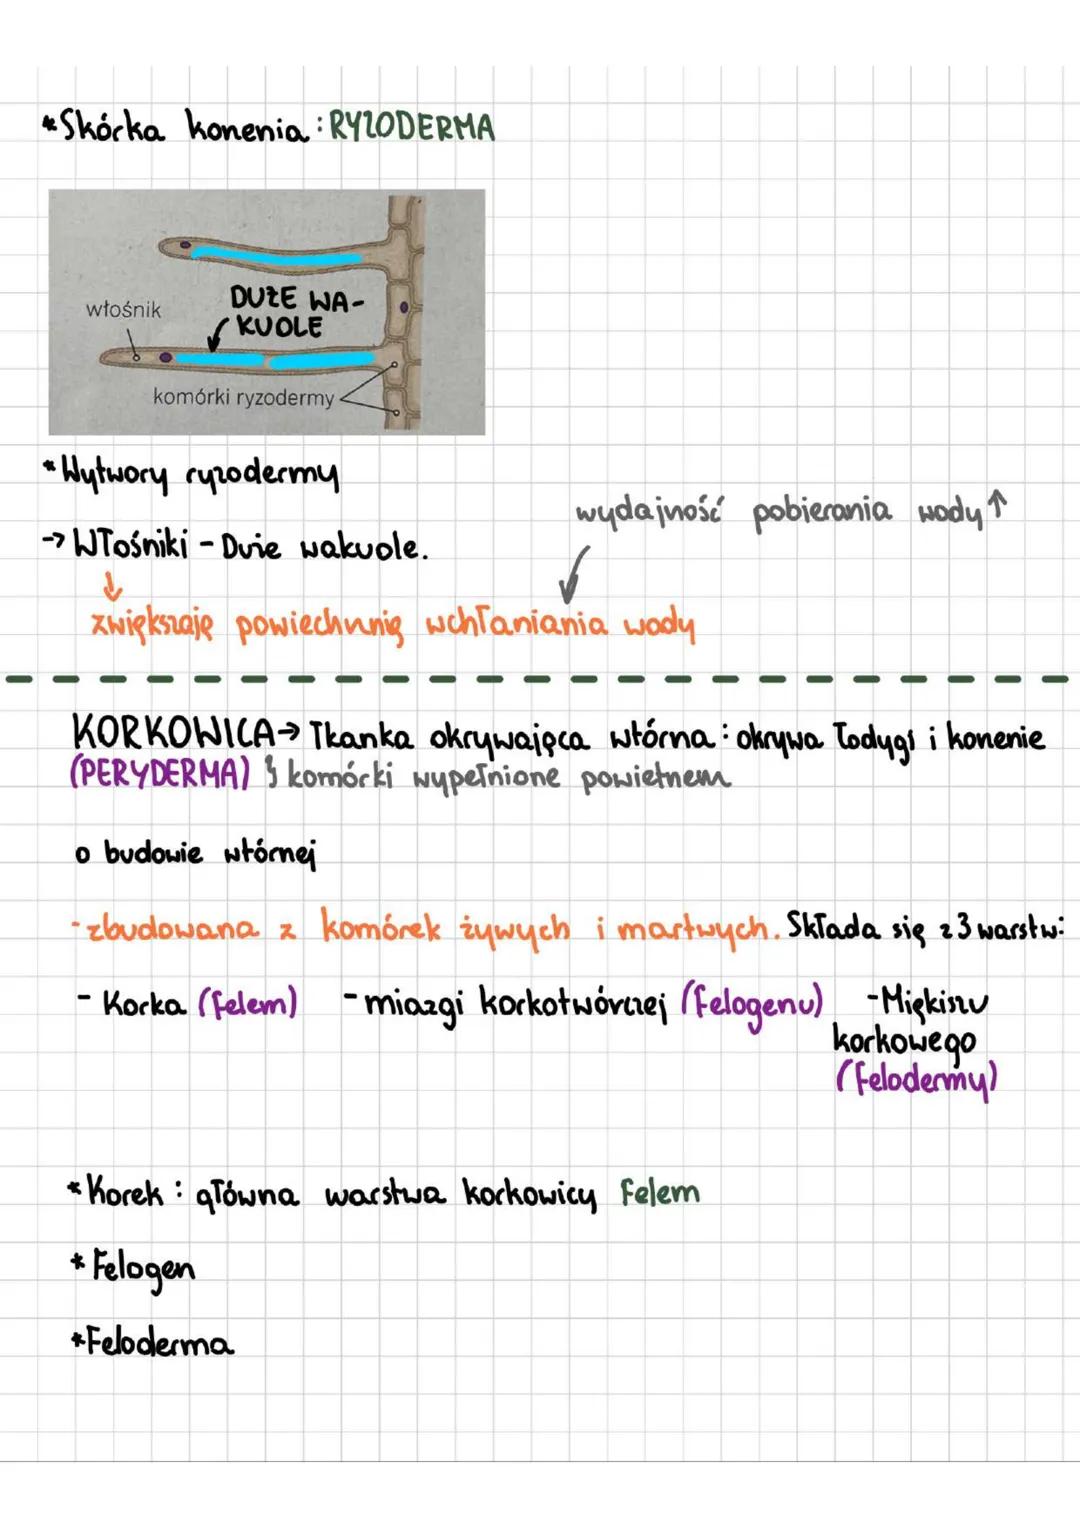 *Skórka korzenia: RYZODERMA
DUŻE WA-
włośnik
KUOLE
komórki ryzodermy
*Wytwory ryzodermy
wydajność pobierania wody ↑
→ Włośniki - Duże wakuole.
↓
zwiększają powierzchnię wchłaniania wody
KORKOWICA → Tkanka okrywająca wtórna: okrywa łodygi i korzenie
(PERYDERMA) } komórki wypełnione powietrzem
o budowie wtórnej
-zbudowana z komórek żywych i martwych. Składa się z 3 warstw:
- Korka (felem) -miazgi korkotwórczej (felogenu) -Miękiszu
korkowego
(felodermy)
*Korek: główna warstwa korkowicy Felem
*Felogen
*Feloderma